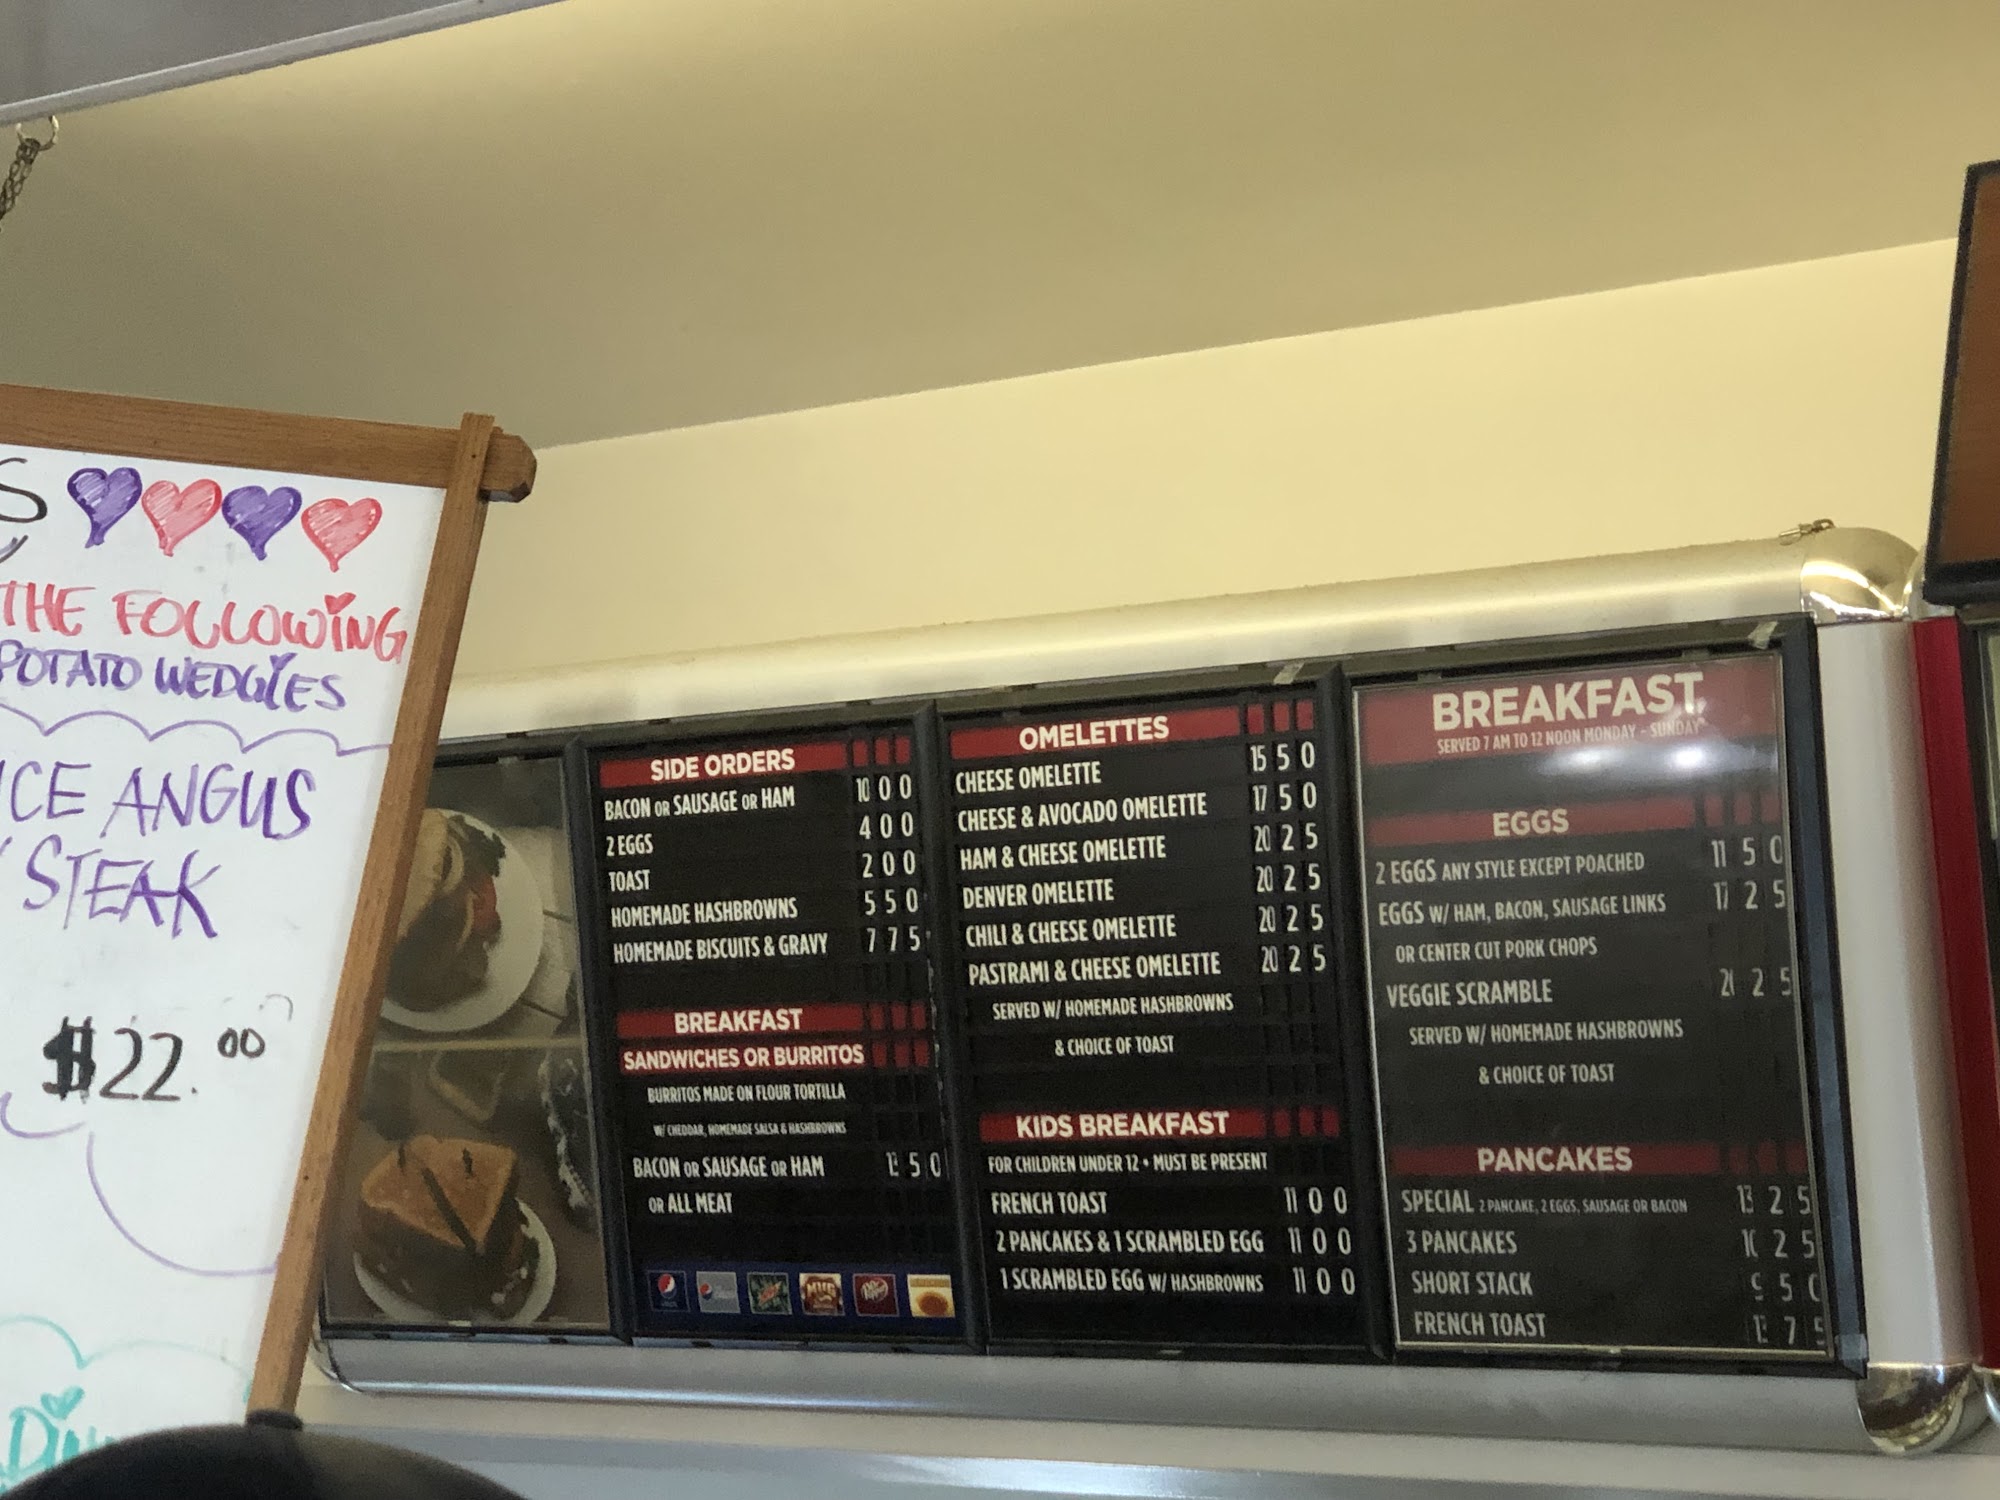 S
THE FOLLOWING
POTATO WEDGIES
ICE ANGUS
STEAK
$22.00
SIDE ORDERS
BACON OR SAUSAGE OR HAM 10 0 0
2 EGGS 4 0 0
TOAST 2 0 0
HOMEMADE HASHBROWNS 5 5 0
HOMEMADE BISCUITS & GRAVY 7 7 5
BREAKFAST
SANDWICHES OR BURRITOS
BURRITOS MADE ON FLOUR TORTILLA
W/ CHEDDAR, HOMEMADE SALSA & HASHBROWNS
BACON OR SAUSAGE OR HAM 5 0
OR ALL MEAT
MUG
OMELETTES
CHEESE OMELETTE 15 5 0
CHEESE & AVOCADO OMELETTE 17 5 0
HAM & CHEESE OMELETTE 20 2 5
DENVER OMELETTE 20 2 5
CHILI & CHEESE OMELETTE 20 2 5
PASTRAMI & CHEESE OMELETTE 20 2 5
SERVED W/ HOMEMADE HASHBROWNS
& CHOICE OF TOAST
KIDS BREAKFAST
FOR CHILDREN UNDER 12 • MUST BE PRESENT
FRENCH TOAST 11 0 0
2 PANCAKES & 1 SCRAMBLED EGG 11 0 0
1 SCRAMBLED EGG W/ HASHBROWNS 11 0 0
BREAKFAST
SERVED 7 AM TO 12 NOON MONDAY - SUNDAY
EGGS
2 EGGS ANY STYLE EXCEPT POACHED 11 5 0
EGGS W/ HAM, BACON, SAUSAGE LINKS 17 2 5
OR CENTER CUT PORK CHOPS
VEGGIE SCRAMBLE 21 2 5
SERVED W/ HOMEMADE HASHBROWNS
& CHOICE OF TOAST
PANCAKES
SPECIAL 2 PANCAKE, 2 EGGS, SAUSAGE OR BACON 13 2 5
3 PANCAKES 10 2 5
SHORT STACK 9 5 0
FRENCH TOAST 7 5